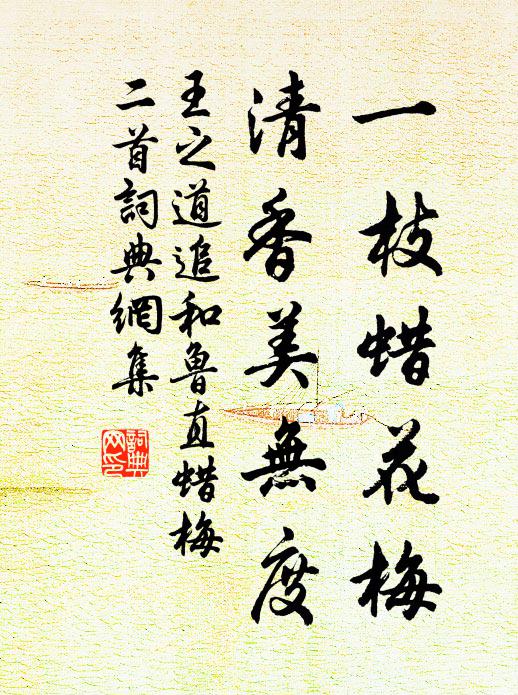 一枝蜡花梅
清香美無度
王之道追和鲁直蜡梅
二首詞典網集
詞典
网印